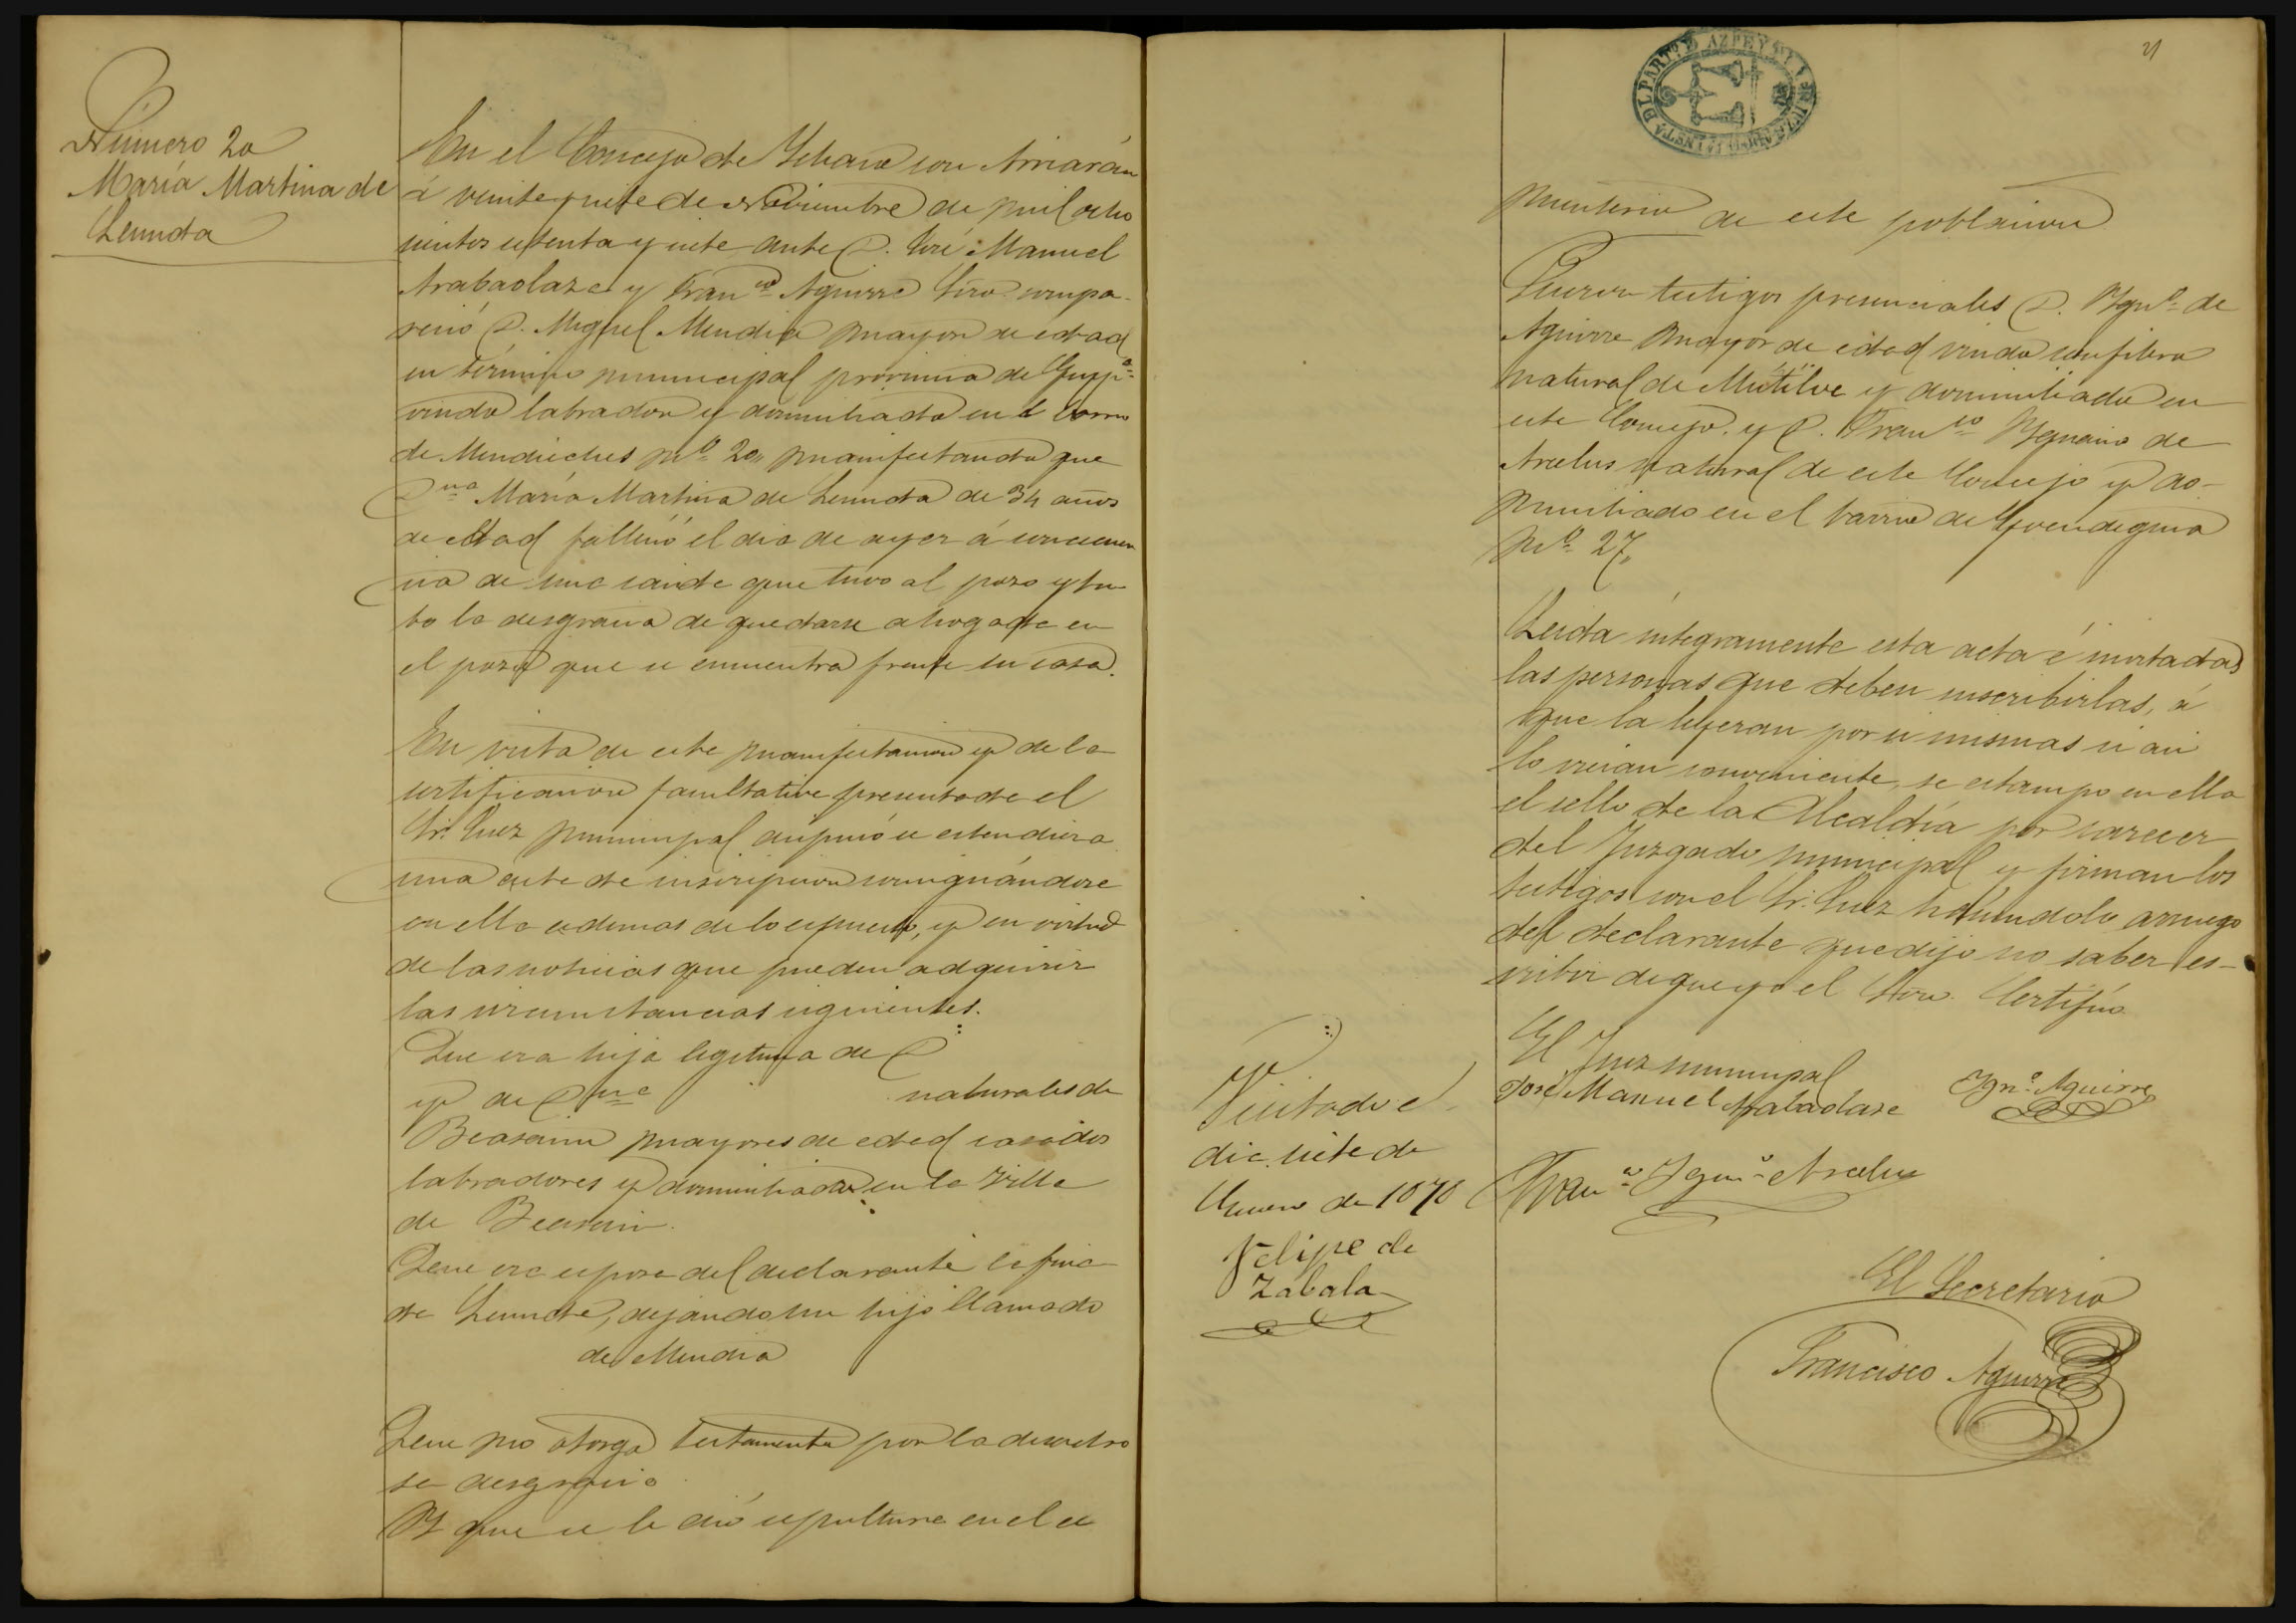 Número 20
María Martina de
Lemnda
En el Concejo de Ichaso con Arriarán
á veinte y siete de Noviembre de mil ocho
cientos setenta y siete ante D. José Manuel
Arabaolaza y Fran.co Aguirre Srio. compa-
reció D. Miguel Mendia mayor de edad
en término municipal provincia de Guip.a
viudo labrador y domiciliado en el barrio
de Mendieches n.o 20,, manifestando que
D.na María Martina de Lemnda de 34 años
de edad falleció el dia de ayer á consecuen
cia de una caida que tuvo al pozo y tu-
bo la desgracia de quedarse ahogada en
el pozo que se encuentra frente su casa.
En vista de esta manifestacion y de la
certificacion facultativa presentada el
Sr. Juez municipal dispuso se estendiera
una acta de inscripcion consignándose
en ella ademas de lo espuesto, y en virtud
de las noticias que pueden adquirir
las circunstancias siguientes.
Que era hija legitima de D.
y de D.na naturales de
Beasain mayores de edad casados
labradores y domiciliados en la Villa
de Beasain.
Que era esposa del declarante la fina-
da Lemnda, dejando un hijo llamado
de Mendia
Que no otorgó testamento por la desastro
sa desgracia
Y que se le dió sepultura en el ce
21
PARTO D AZPEYTIA
menterio de esta poblacion
Fueron testigos presenciales D. Ygn.o de
Aguirre mayor de edad viudo confitero
natural de Mutiloa y domiciliado en
este Concejo. y D. Fran.co Ygnacio de
Aracelus natural de este Concejo y do-
miciliado en el barrio de
n.o 27,,
Leida integramente esta acta é invitadas
las personas que deben inscribirlas, á
que la leyeran por si mismas si asi
lo creian conveniente, se estampo en ella
el sello de la Alcaldía por carecer
del Juzgado municipal y firman los
testigos con el Sr. Juez haciendolo arruego
del declarante que dijo no saber es-
cribir de que yo el Srio. Certifico
El Juez municipal
José Manuel Arabaolaza
Ygn.o Aguirre
Fran.co Ygn.o Aracelus
El Secretario
Francisco Aguirre
Visitado el
dia siete de
Enero de 1878
Felipe de
Zabala